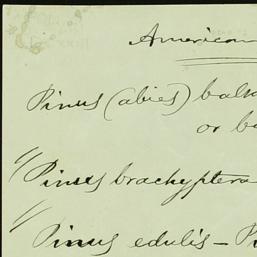 American
Pinus (abies) bals
or b
Pinus brachyptera
Pinus edulis - P